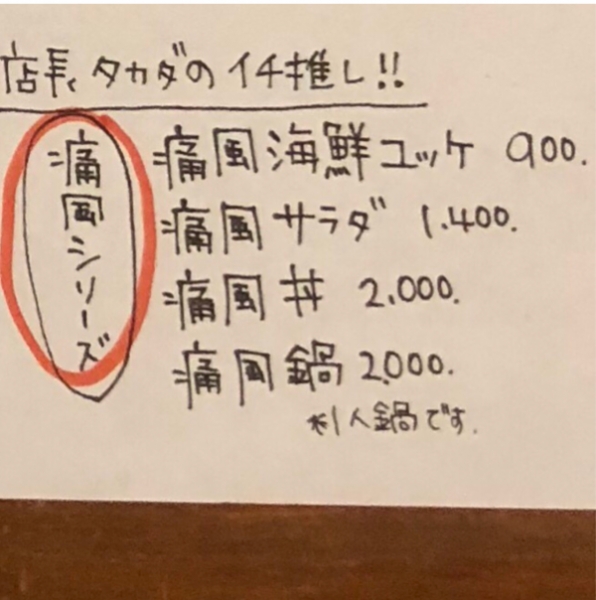 店長タカダのイチ推し!!
痛風シリーズ
痛風海鮮ユッケ 900.
痛風サラダ 1.400.
痛風丼 2,000.
痛風鍋 2,000.
※1人鍋です.